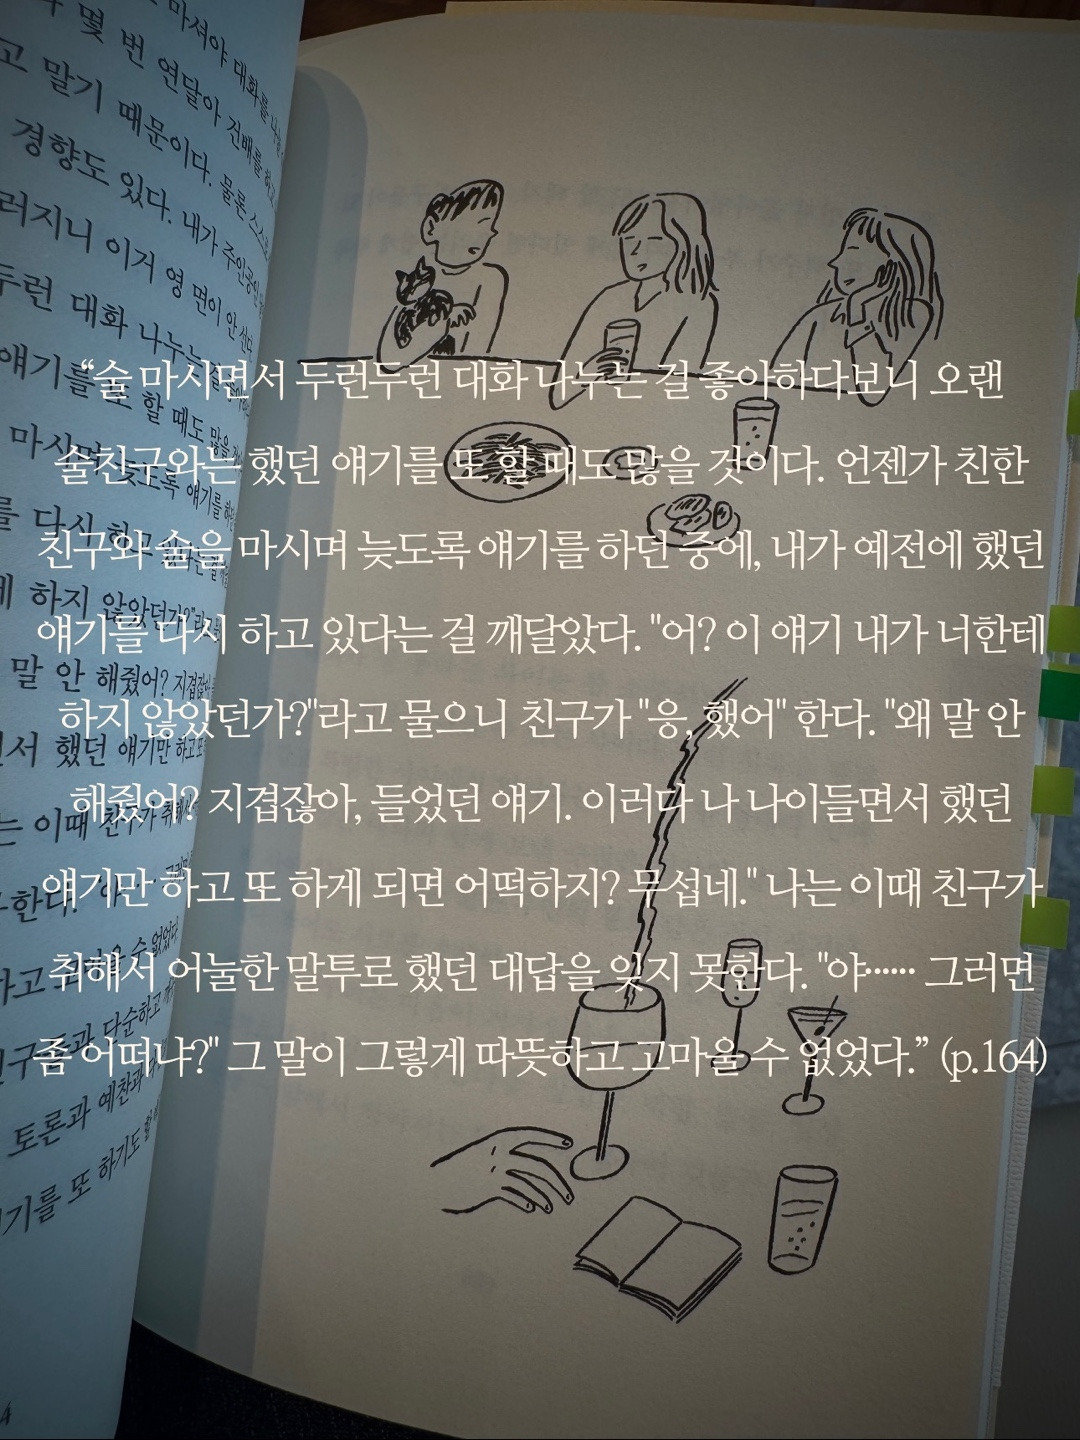 마셔야 대화를
몇 번 연달아 건배를 하고
고 말기 때문이다. 물론 스스로
경향도 있다. 내가 주인공인
러지니 이거 영 면이 안 선다
두런 대화 나누는
얘기를 또 할 때도 많을
마시며 늦도록 얘기를 하던
를 다시 하고
게 하지 않았던가?"라고
말 안 해줬어? 지겹잖아
서 했던 얘기만 하고 또
는 이때 친구가 취해서
한다. "야
하고 고마울 수 없었다.
친구들과 단순하고
토론과 예찬과
기를 또 하기도 할
4
“술 마시면서 두런두런 대화 나누는 걸 좋아하다보니 오랜
술친구와는 했던 얘기를 또 할 때도 많을 것이다. 언젠가 친한
친구와 술을 마시며 늦도록 얘기를 하던 중에, 내가 예전에 했던
얘기를 다시 하고 있다는 걸 깨달았다. "어? 이 얘기 내가 너한테
하지 않았던가?"라고 물으니 친구가 "응, 했어" 한다. "왜 말 안
해줬어? 지겹잖아, 들었던 얘기. 이러다 나 나이들면서 했던
얘기만 하고 또 하게 되면 어떡하지? 무섭네." 나는 이때 친구가
취해서 어눌한 말투로 했던 대답을 잊지 못한다. "야…… 그러면
좀 어떠냐?" 그 말이 그렇게 따뜻하고 고마울 수 없었다.” (p.164)